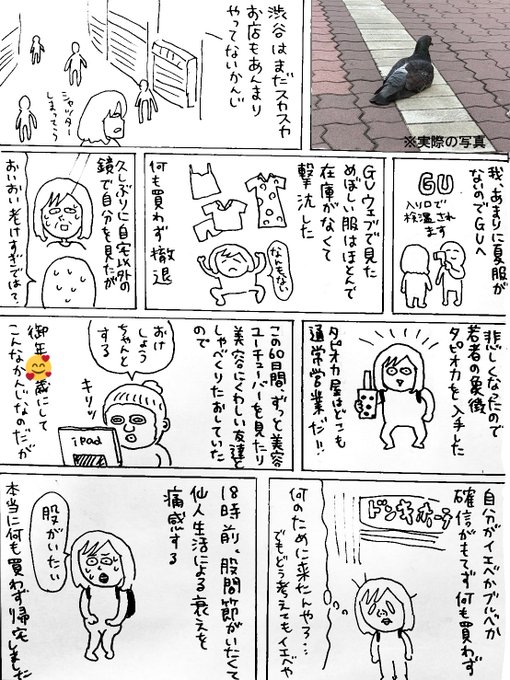 ※実際の写真
渋谷はまだスヤスヤ
お店もあんまり
やってないかんじ
シャッター
しまってう
我、あまりに夏服が
ないのでGUへ
GU
入り口で
検温され
ます
GUウェブで見た
めぼしい服はほとんど
在庫がなくて
撃沈した
なんもない
何も買わず撤退
久しぶりに自宅以外の
鏡で自分を見たが
おいおい老けすぎでは?
悲しくなったので
若者の象徴
タピオカを入手した
タピオカ屋はどこも
通常営業だ!!
この60日間、ずっと美容
ユーチューバーを見たり
美容にくわしい友達と
しゃべくりたおしていた
ので
おけ
しょう
ちゃんと
する
キリッ
iPad
御年🥰歳にして
こんなかんじなのだが
自分がイエベかブルベか
確信がもてず何も買わず
ドンキホーテ
何のために来たんやろ…
でもどう考えてもイエベや
18時前、股関節がいたくて
仙人生活による衰えを
痛感する
股がいたい
本当に何も買わず帰宅しました